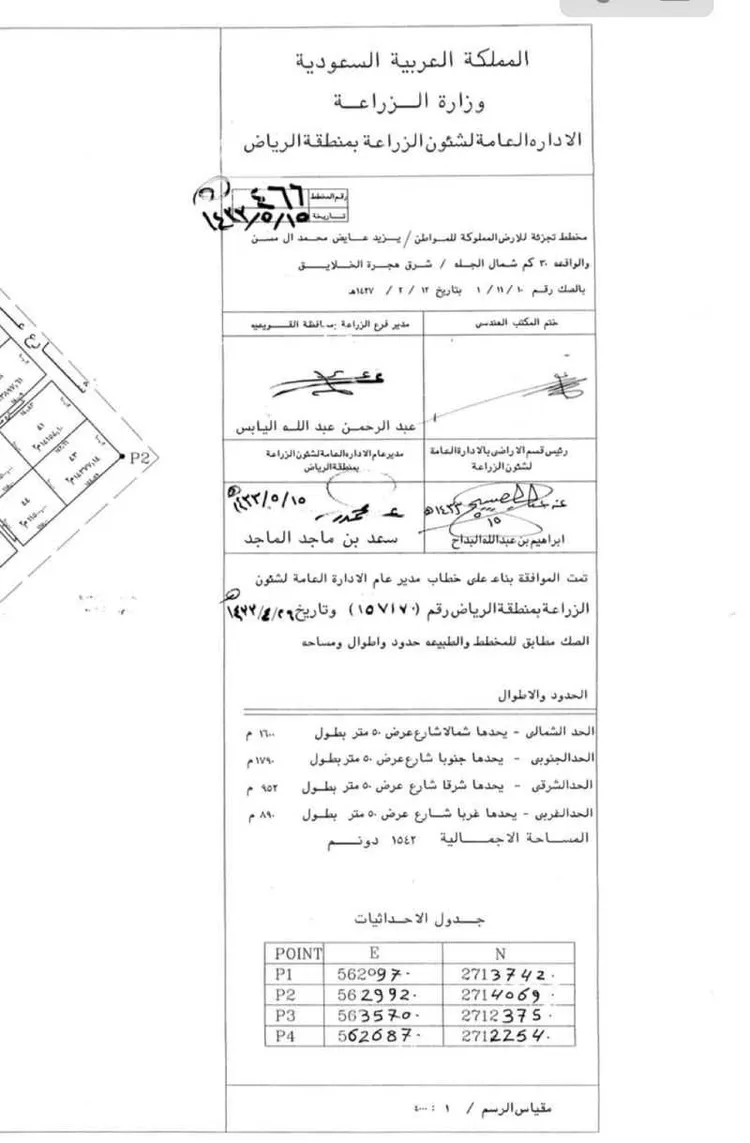 المملكة العربية السعودية
وزارة الـزراعـة
الاداره العامة لشئون الزراعة بمنطقة الرياض
رقم المخطط ٤٦٦
تاريخة ١٤٣٣/٥/١٥
مخطط تجزئة للارض المملوكة للمواطن / يزيد عايض محمد ال مسن
والواقعه ٣٠ كم شمال الجله / شرق هجرة الخلايق
بالصك رقم ١/١١/١٠ بتاريخ ١٢/ ٢ / ١٤٢٧هـ
ختم المكتب الهندسي
مدير فرع الزراعة بمحافظة القويعيه
عبد الرحمن عبد الله اليابس
رئيس قسم الاراضي بالادارة العامة
لشئون الزراعة
مدير عام الاداره العامة لشئون الزراعة
بمنطقة الرياض
١٤٣٣/٥/١٥
ابراهيم بن عبدالله البداح
سعد بن ماجد الماجد
تمت الموافقة بناء على خطاب مدير عام الادارة العامة لشئون
الزراعة بمنطقة الرياض رقم (١٥٧١٧٠) وتاريخ ١٤٣٣/٤/٢٦
الصك مطابق للمخطط والطبيعه حدود واطوال ومساحه
الحدود والاطوال
الحد الشمالي - يحدها شمالا شارع عرض ٥٠ متر بطول ١٦٠٠ م
الحد الجنوبي - يحدها جنوبا شارع عرض ٥٠ متر بطول ١٧٩٠ م
الحد الشرقي - يحدها شرقا شارع عرض ٥٠ متر بطول ٩٥٢ م
الحد الغربي - يحدها غربا شارع عرض ٥٠ متر بطول ٨٩٠ م
المساحة الاجمـالية ١٥٤٢ دونـم
جـدول الاحـداثيات
POINT E N
P1 562097٠ 2713742٠
P2 562992٠ 2714069٠
P3 563570٠ 2712375٠
P4 562687٠ 2712254٠
مقياس الرسم / ١ : ٤٠٠٠
شارع
٤١
٤٣
٤٤
P2